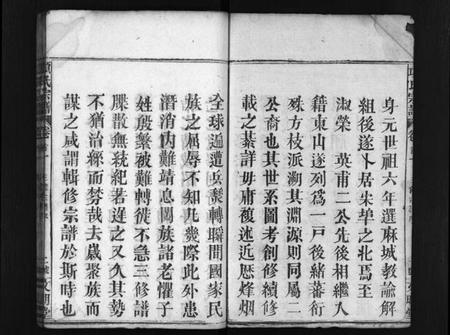 身元世祖六年選麻城教諭解
組後遂卜居朱莘之北焉至
淑榮　英甫二公先後相繼入
籍東山遂列為一戶後緒蕃衍
殊方枝派溯其淵源則同屬二
公裔也其世系圖考創修續修
載之綦詳毋庸複述近歷烽烟
全球遍遭兵燹轉瞬間國家民
族之屈辱不知凡幾際此外患
潛消內難靖息闔族諸老懼子
姓殷繁被難轉徙不急三修譜
牒散無紀若遲之又久其勢
不猶治絲而棼哉去歲聚族而
謀之咸謂輯修宗譜於斯時也
氏宗譜